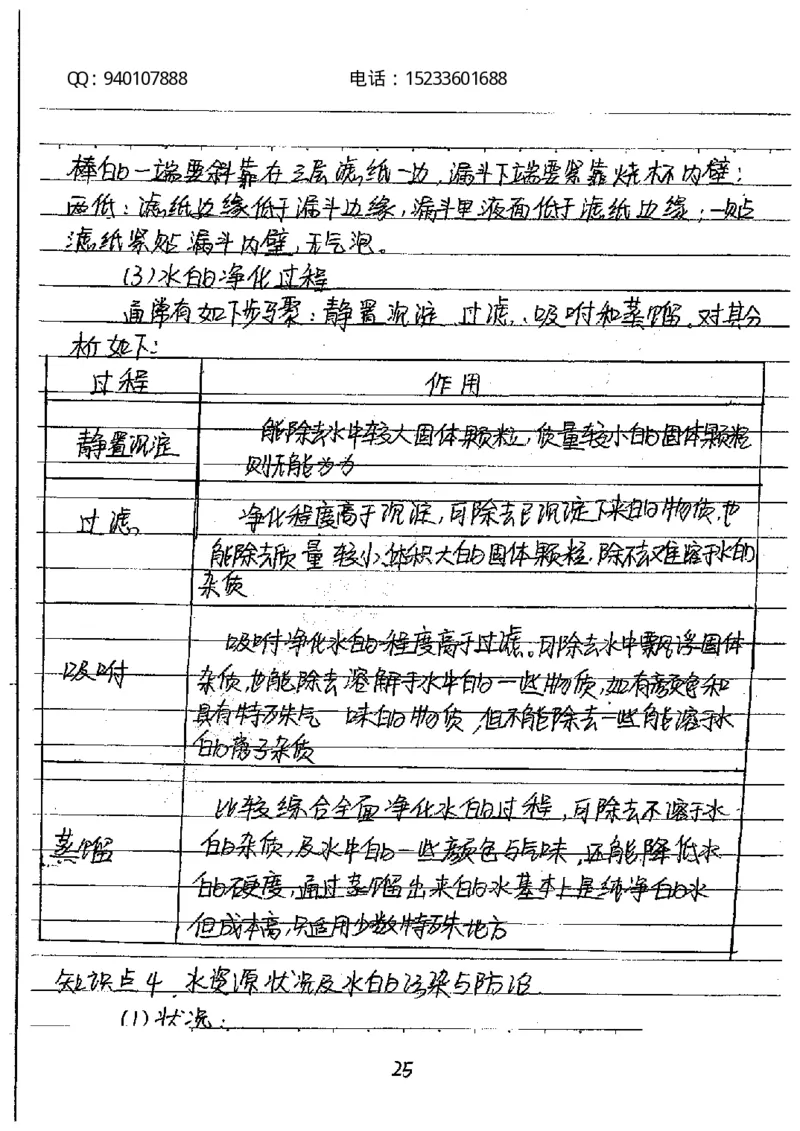 QQ：940107888 电话：15233601688
棒的一端要斜靠在三层滤纸一边，漏斗下端要紧靠烧杯内壁；
两低：滤纸边缘低于漏斗边缘，漏斗里液面低于滤纸边缘；一贴
滤纸紧贴漏斗内壁，无气泡。
(3)水的净化过程
通常有如下步骤：静置沉淀、过滤、吸附和蒸馏。对其分
析如下：
过程 作用
静置沉淀
能除去水中较大固体颗粒，质量较小的固体颗粒
则无能为力
过滤
净化程度高于沉淀，可除去已沉淀下来的物质，也
能除去质量较小、体积大的固体颗粒，除不去难溶于水的
杂质
吸附
吸附净化水的程度高于过滤。可除去水中飘浮固体
杂质，也能除去溶解于水中的一些物质，如有颜色和
具有特殊气味的物质，但不能除去一些能溶于水
的离子杂质
蒸馏
比较综合全面净化水的过程，可除去不溶于水
的杂质，及水中的一些颜色与气味，还能降低水
的硬度，通过蒸馏出来的水基本上是纯净的水
但成本高，只适用少数特殊地方
知识点4、水资源状况及水的污染与防治
(1)状况：
25